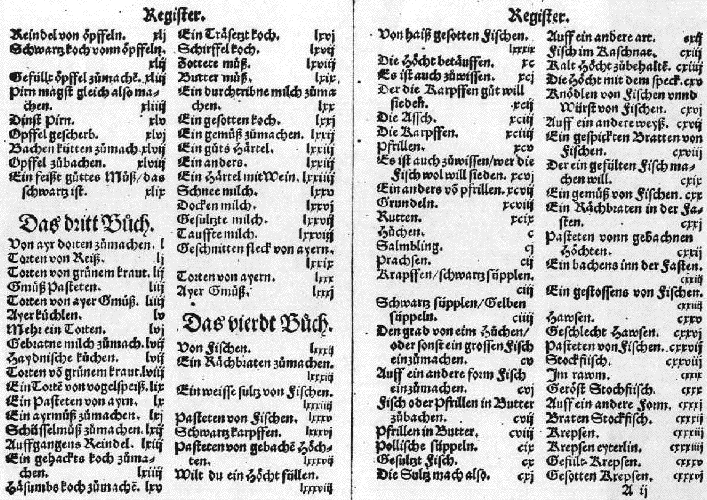 Register.
Reindel von öpffeln. xlj
Schwartz koch vonn öpffeln.
xlij
Gefüllt öpffel zůmachē. xliij
Pirn magst gleich also ma⸗
chen. xliiij
Dünst Pirn. xlv
Opffel gescherb. xlvj
Bachen kütten zůmach. xlvij
Opffel zůbachen. xlviij
Ein feißt gůttes Můß/das
schwartz ist. xlix
Das dritt Bůch.
Von ayr dorten zůmachen. l
Torten von Reiß. lj
Torten von grünem kraut. lij
Gmůß Pasteten. liij
Torten von ayer Gmůß. liiij
Ayer küchlen. lv
Mehr ein Torten. lvj
Gebratne milch zůmach. lvij
Haydnische kůchen. lviij
Torten vō grünem kraut. lviij
Ein Tortē von vogelspeiß. lix
Ein Pasteten von ayrn. lx
Ein ayrmůß zůmachen. lxj
Schüsselmůß zůmachen. lxij
Auffgangens Reindel. lxiij
Ein gehackts koch zůma⸗
chen. lxiiij
Häfumbs koch zůmachē. lxv
Ein Träsetzt koch. lxvj
Schirffel koch. lxvij
Zottete můß. lxviij
Butter můß. lxix
Ein durchtribne milch zůma
chen. lxx
Ein gesotten koch. lxxj
Ein gemůß zůmachen. lxxij
Ein gůts Härtel. lxxiij
Ein anders. lxxiij
Ein Härtel mit Wein. lxxiiij
Schnee milch. lxxv
Docken milch. lxxvj
Gesultzte milch. lxxvij
Tauffte milch. lxxviij
Geschnitten fleck von ayern.
lxxix
Torten von ayern. lxxx
Ayer Gmůß. lxxxj
Das vierdt Bůch.
Von Fischen. lxxxij
Ein Rächbraten zůmachen.
lxxxiij
Ein weisse sultz von Fischen.
lxxxiiij
Pasteten von Fischen. lxxxv
Schwartz karpffen. lxxxvj
Pasteten von gebachē Höch⸗
ten. lxxxvij
Wilt du ein Höcht füllen.
lxxxviij
Register.
Von haiß gesotten Fischen.
lxxxix
Die Höcht betäuffen. xc
Es ist auch zůwissen. xcj
Der die Karpffen gůt will
sieden. xcij
Die Asch. xciij
Die Karpffen. xciiij
Pfrillen. xcv
Es ist auch zůwissen/wer die
Fisch wol will sieden. xcvj
Ein anders vō pfrillen. xcvij
Grundeln. xcviij
Rutten. xcix
Hůchen. c
Salmbling. cj
Prachsen. cij
Krapffen/schwartz süpplen.
ciij
Schwartz süpplen/Gelben
süppeln. ciiij
Den grad von eim Hůchen/
oder sonst ein grossen Fisch
einzůmachen. cv
Auff ein andere form Fisch
einzůmachen. cvj
Fisch oder Pfrillen in Butter
zůbachen. cvij
Pfrillen in Butter. cviij
Pollische süppeln. cix
Gesultzt Fisch. cx
Die Sultz mach also. cxj
Auff ein andere art. cxij
Fisch im Kaschnat. cxiij
Kalt Höcht zůbehaltē. cxiiij
Die Höcht mit dem speck. cxv
Knödlen von Fischen vnnd
Würst von Fischen. cxvj
Auff ein andere weyß. cxvij
Ein gespickten Bratten von
Fischen. cxviij
Der ein gefülten Fisch ma⸗
chen will. cxix
Ein gemůß von Fischen. cxx
Ein Rächbraten in der Fa⸗
sten. cxxj
Pasteten vonn gebachnen
Höchten. cxxij
Ein bachens inn der Fasten.
cxxiij
Ein gestossens von Fischen.
cxxiiij
Hawsen. cxxv
Geschlecht Hawsen. cxxvj
Pasteten von Fischen. cxxvij
Stockfisch. cxxviij
Im rawm. cxxix
Geröst Stochfisch. cxxx
Auff ein andere Form. cxxxj
Braten Stockfisch. cxxxij
Krepsen. cxxxiij
Krepsen eyterlin. cxxxiiij
Gefült Krepsen. cxxxv
Gesotten Krepsen. cxxxvj
A ij